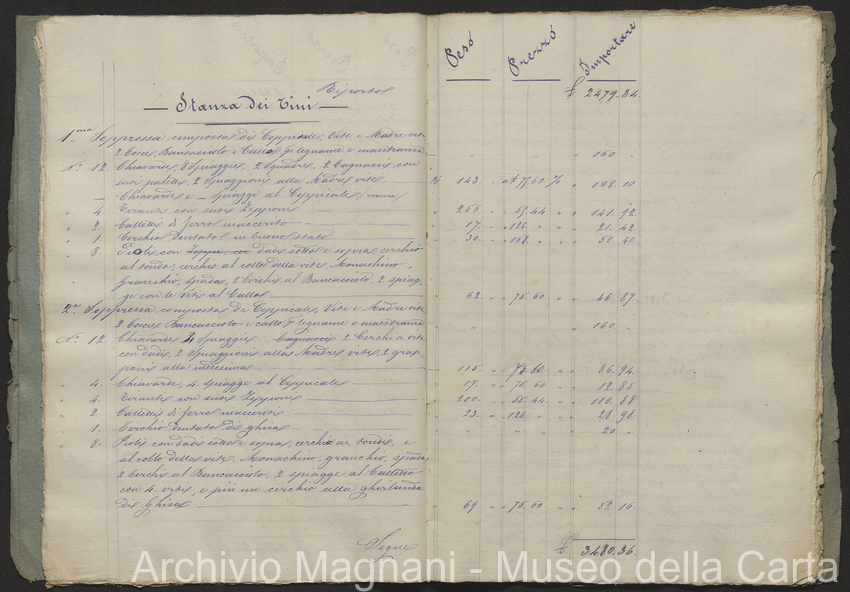 Peso Prezzo Importare
Riporto £ 2479.84
Stanza dei Tini
1ma Soppressa composta di Ceppicale, Vite e Madre vite
2 Coscie, Bancacciolo e Callo p legname e maestranza " " " 160. "
No. 12. Chiavarde, 8 Spiagge, 2 Squadre, 2 Cagnacci con
suoi paletti, 2 Spiaggioni alla Madre vite K 143. 75.60 % " 108.10
— Chiavarde e — spiagge al Ceppicale
" 4. Tiranti con suoi Zepponi " 256. " 55.44 " " 141.92
" 2. Calletti di ferro 17. " 126. " " 21.42
" 1. Cerchio Dentato in buono stato " 30. " 168. " " 50.40
" 8. con dadi sotto e sopra, cerchio
al tondo, cerchio al collo alla vite, Monachino,
Granchio, spada, 2 Cerchi al Bancacciolo, 2 spiag-
ge con le viti al Callo " 62. " 75.60 " " 46.87
2a Soppressa composta di Ceppicale, Vite e Madre vite
2 Coscie Bancacciolo e callo p legname e maestranza " " " 160. "
No. 12 Chiavarde 4 Spiagge, Cagnacci 2 Cerchi a vite
con dadi, 2 Spiaggioni alla Madre vite, 2 grap-
poni alla medesima " 115. " 75.60 " " 86.94
" 4. Chiavarde, 4 spiagge al Ceppicale " 17. " 75.60 " " 12.85
" 4. Tiranti con suoi Zepponi " 200. " 55.44 " " 110.88
" 2. Calletti di ferro " 23. " 126 " " 28.98
" 1. Cerchio Dentato di ghisa " " " " " 20 "
" 8. con dadi sotto e sopra, cerchio ai tondi, e
al collo della vite, Monachino, granchio, spada
2 Cerchi al Bancacciolo, 2 spiagge al Calletto
con 4 viti, e più un cerchio alla ghirlanda
di Ghisa " 69. " 75.60 " " 52.16
Segue £ 3480.36
Archivio Magnani - Museo della Carta